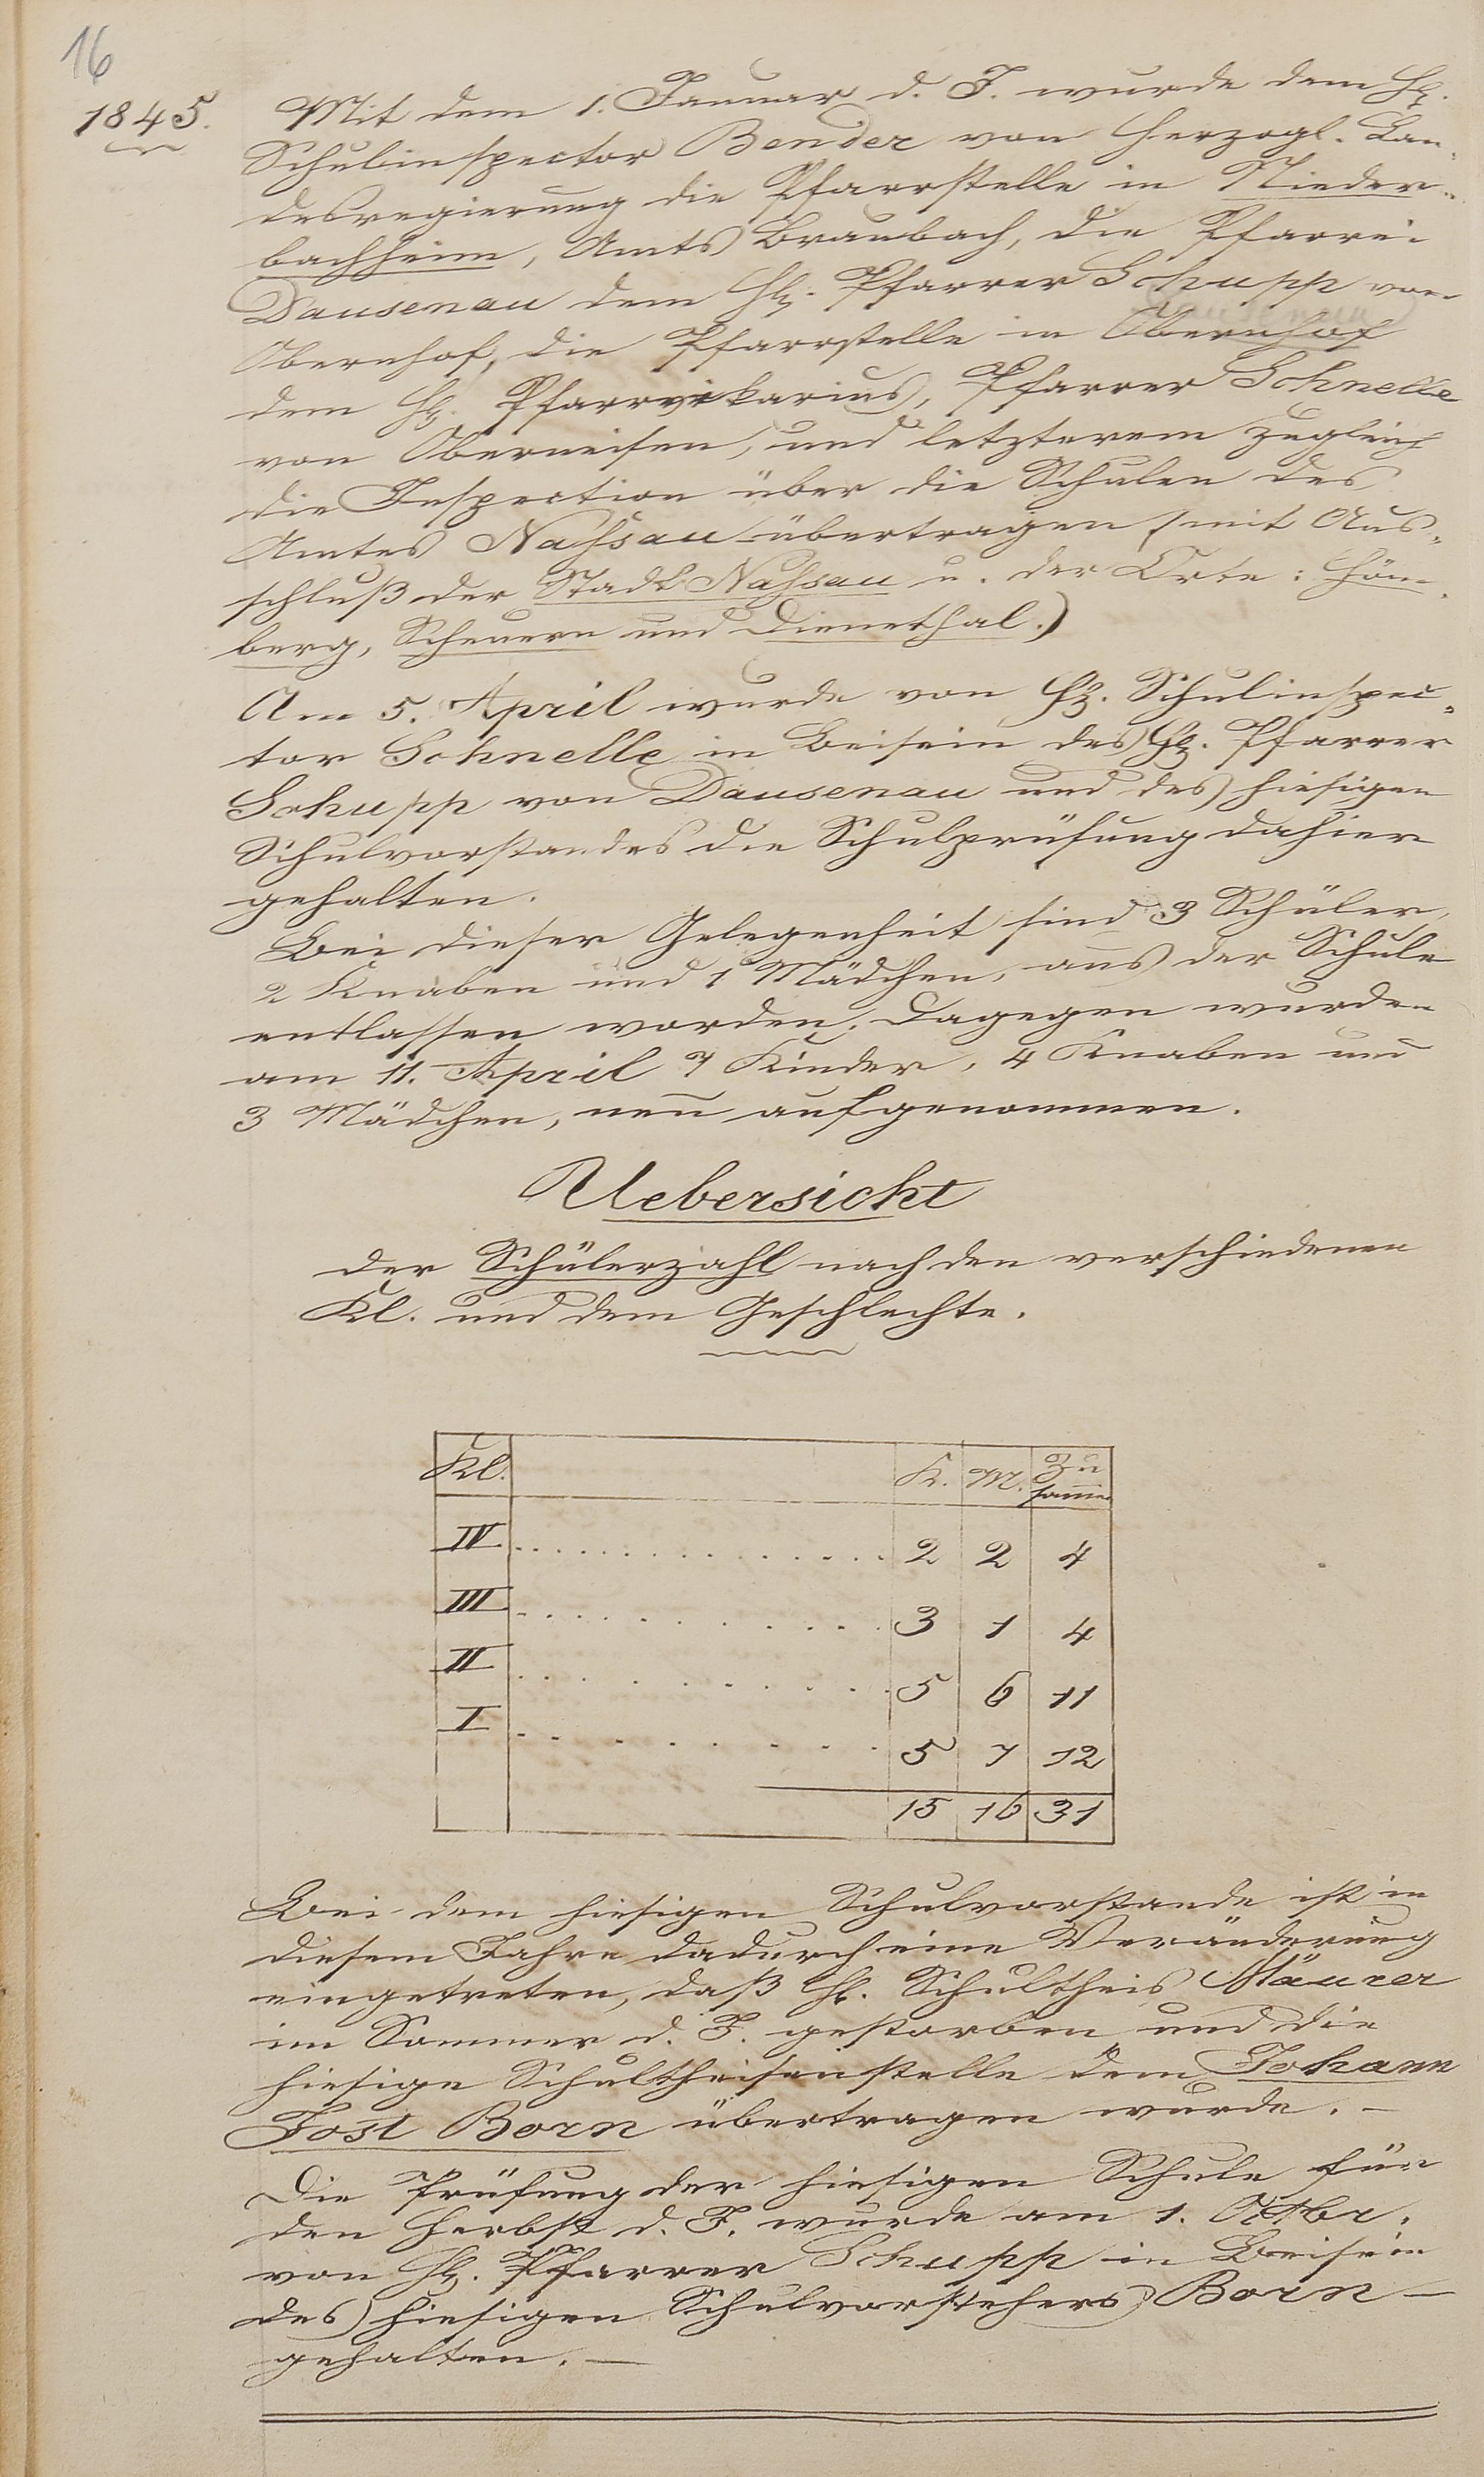 16
1845.
Mit dem 1. Januar d. J. wurde dem H.
Schulinspector Bender von Herzogl. Lan„
desregierung die Pfarrstelle in Nieder„
bachheim, Amts Braubach, die Pfarrei
Dausenau dem H. Pfarrer Schupp von
Obernhof, die Pfarrstelle in Obernhof
dem H. Pfarrvikarius, Pfarrer Schnelle
von Oberneisen, und letzterem zugleich
die Inspection über die Schulen des
Amtes Nassau übertragen (mit Aus„
schluß der Stadt Nassau u. der Orte: Höm„
berg, Scheuern und Dienethal.)
Am 5. April wurde von H. Schulinspec„
tor Schnelle in Beisein des H. Pfarrer
Schupp von Dausenau und des hiesigen
Schulvorstandes die Schulprüfung dahier
gehalten.
Bei dieser Gelegenheit sind 3 Schüler,
2 Knaben und 1 Mädchen, aus der Schule
entlassen worden. Dagegen wurden
am 11. April 7 Kinder, 4 Knaben und
3 Mädchen, neu aufgenommen.
Uebersicht
der Schülerzahl nach den verschiedenen
Kl. und dem Geschlechte.
Kl. K. M. Zu
samme
IV. . . . . . . . . . . . . . 2 2 4
III . . . . . . . . . . . . 3 1 4
II . . . . . . . . . . . 5 6 11
I . . . . . . . . . . 5 7 12
15 16 31
Bei dem hiesigen Schulvorstande ist in
diesem Jahre dadurch eine Veränderung
eingetreten, daß H. Schultheis Mäurer
im Sommer d. J. gestorben und die
hiesige Schultheisenstelle dem Johann
Jost Born übertragen wurde. –
Die Prüfung der hiesigen Schule für
den Herbst d. J. wurde am 1. Octbr.
von H. Pfarrer Schupp in Beisein
des hiesigen Schulvorstehers Born –
gehalten. –